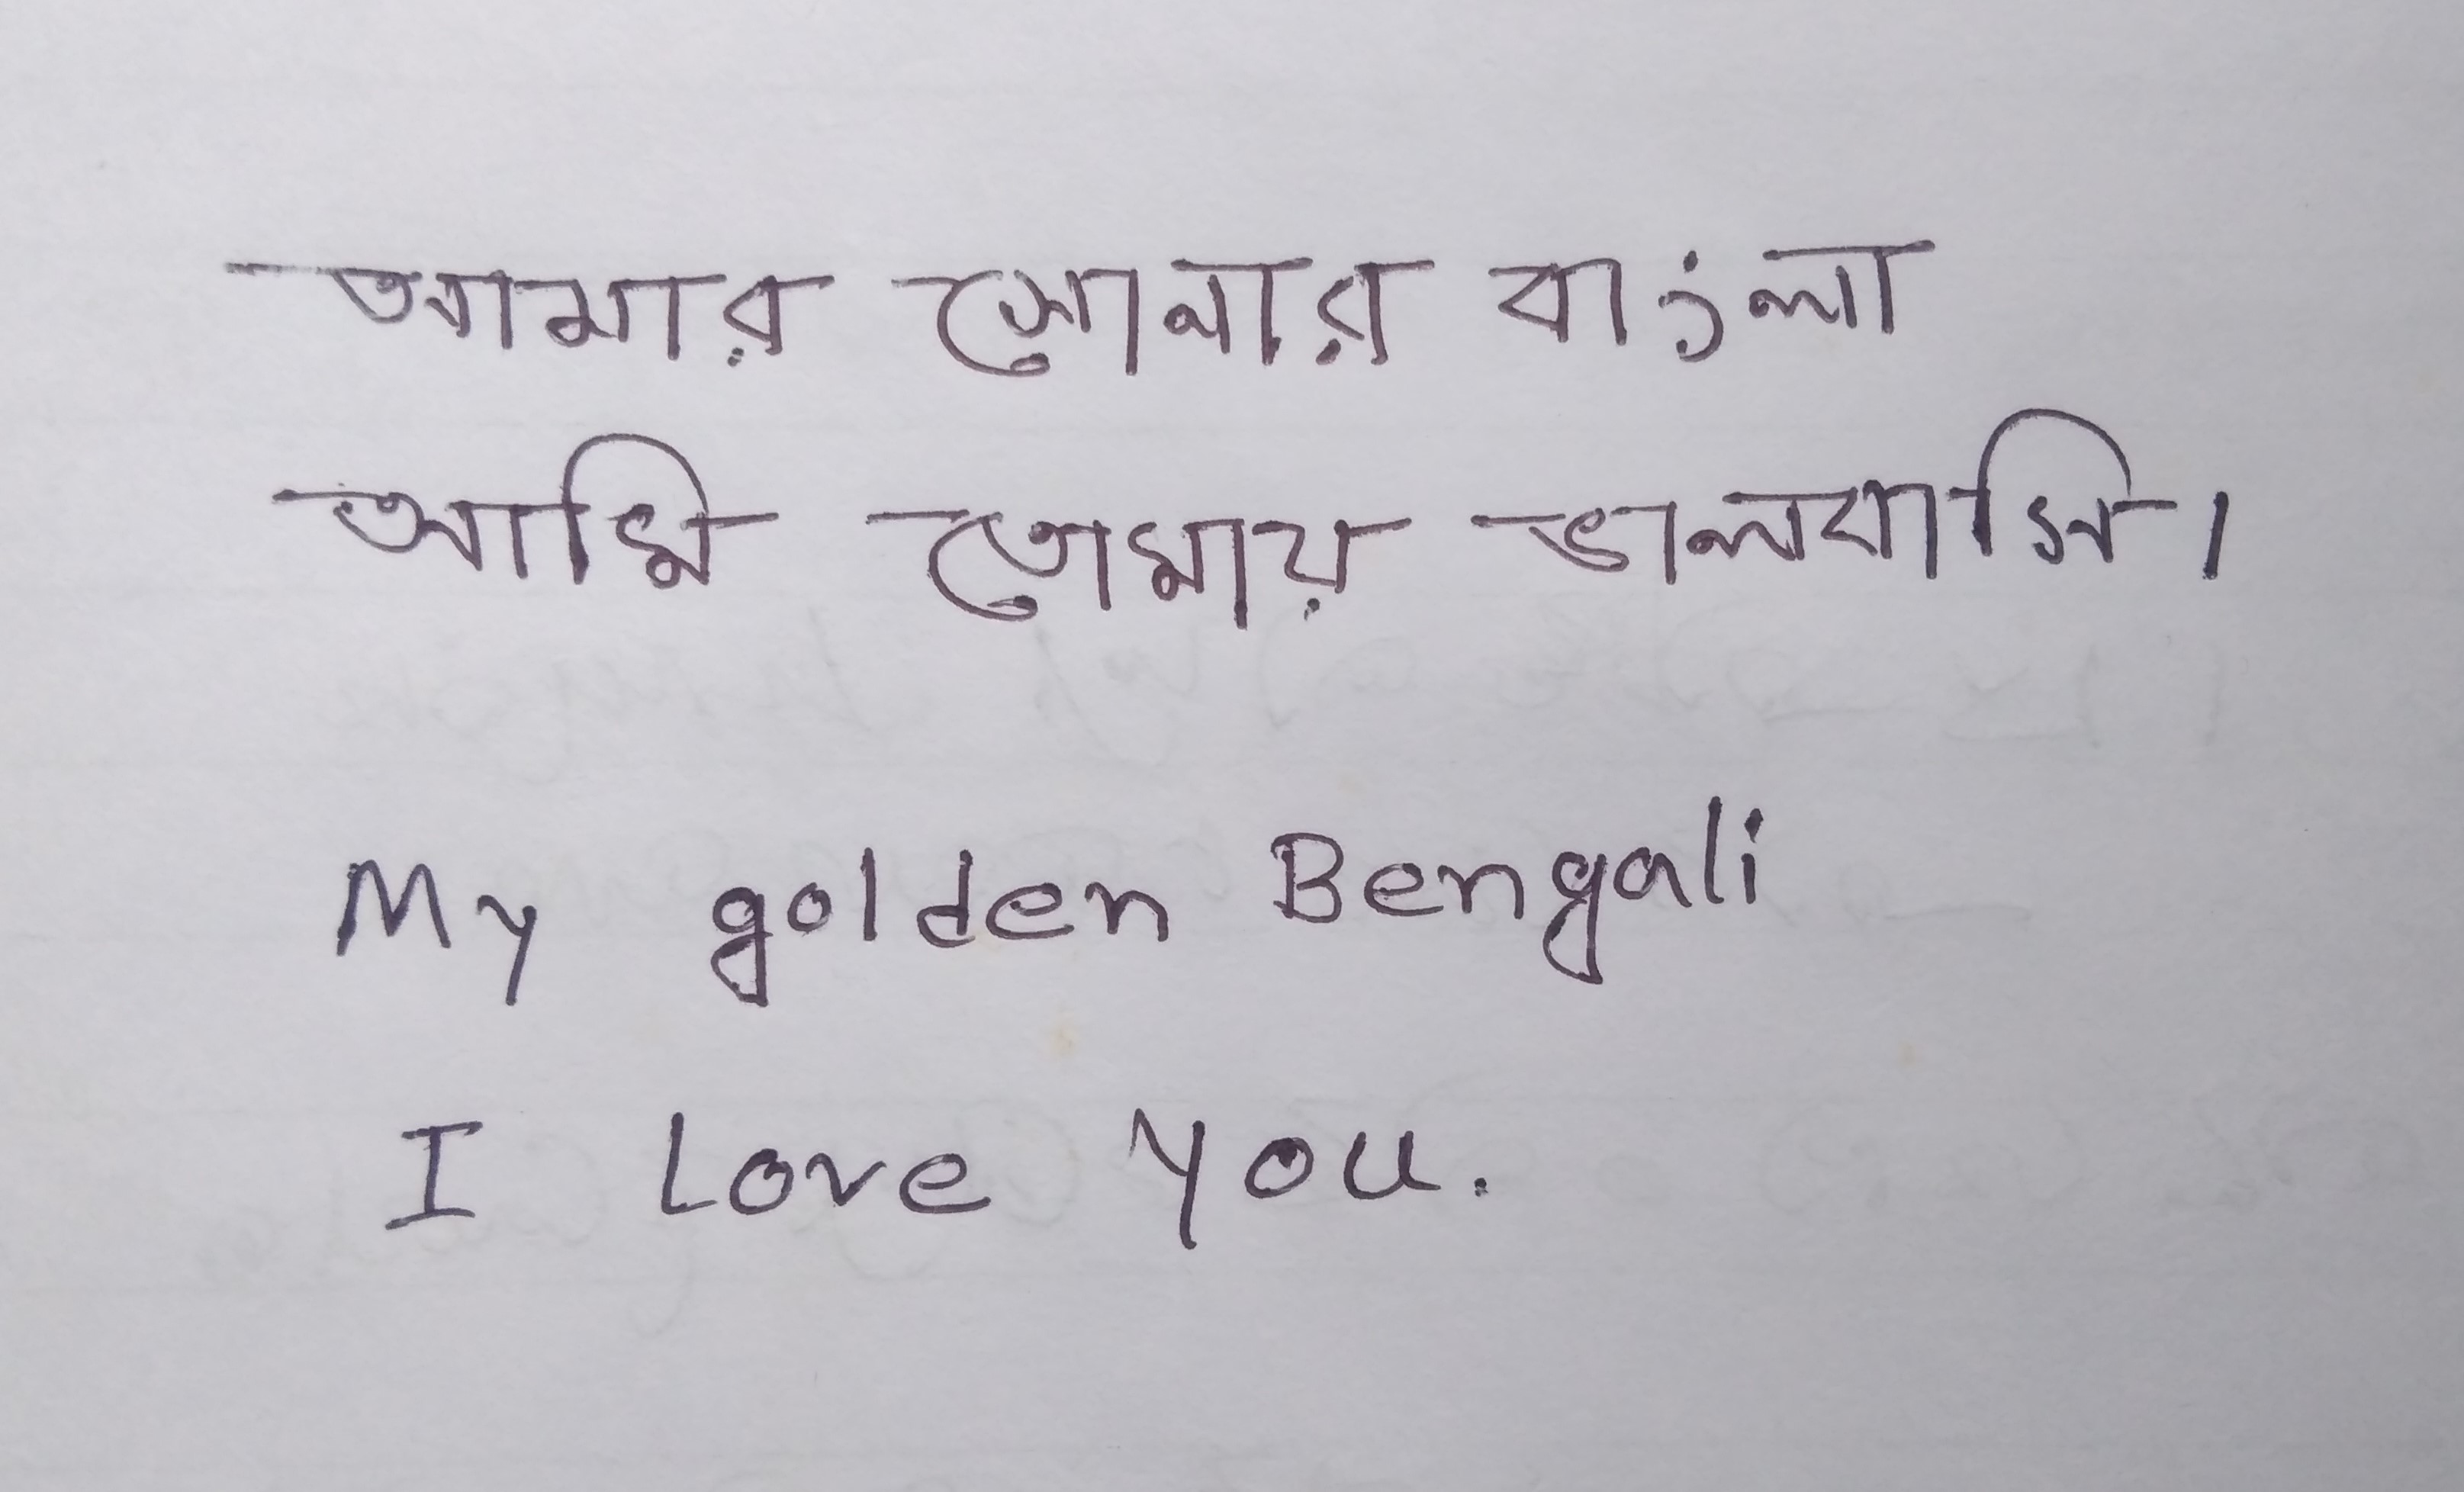 আমার সোনার বাংলা
আমি তোমায় ভালবাসি।
My golden Bengali
I Love you.